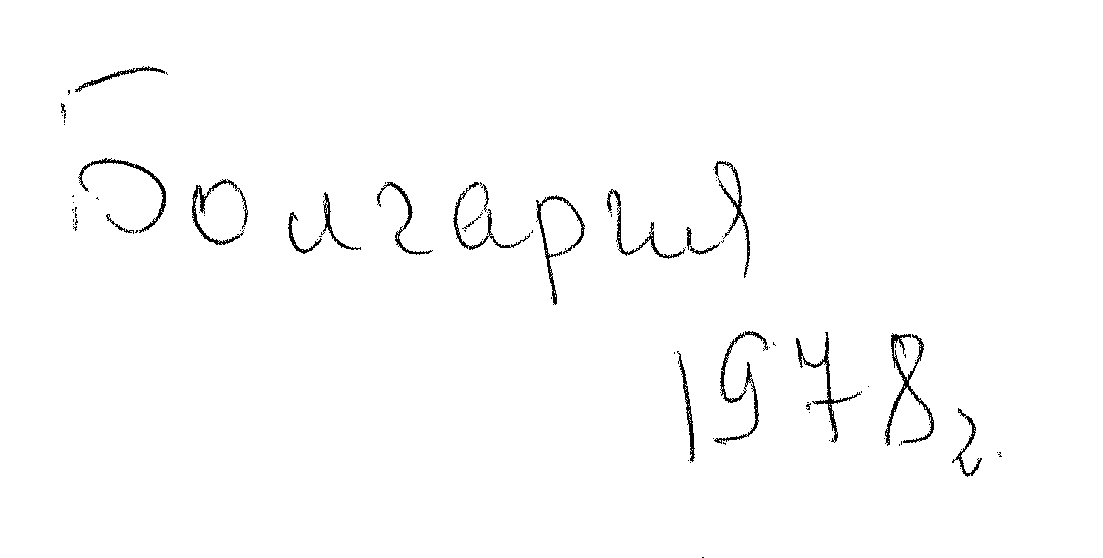 Болгария
1978г.